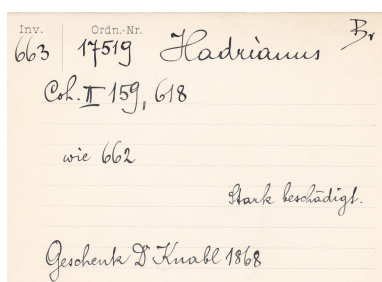 Inv. Ordn.-Nr.
663 17519 Hadrianus Br
Coh. II 159, 618
wie 662
Stark beschädigt.
Geschenk Dr Knabl 1868